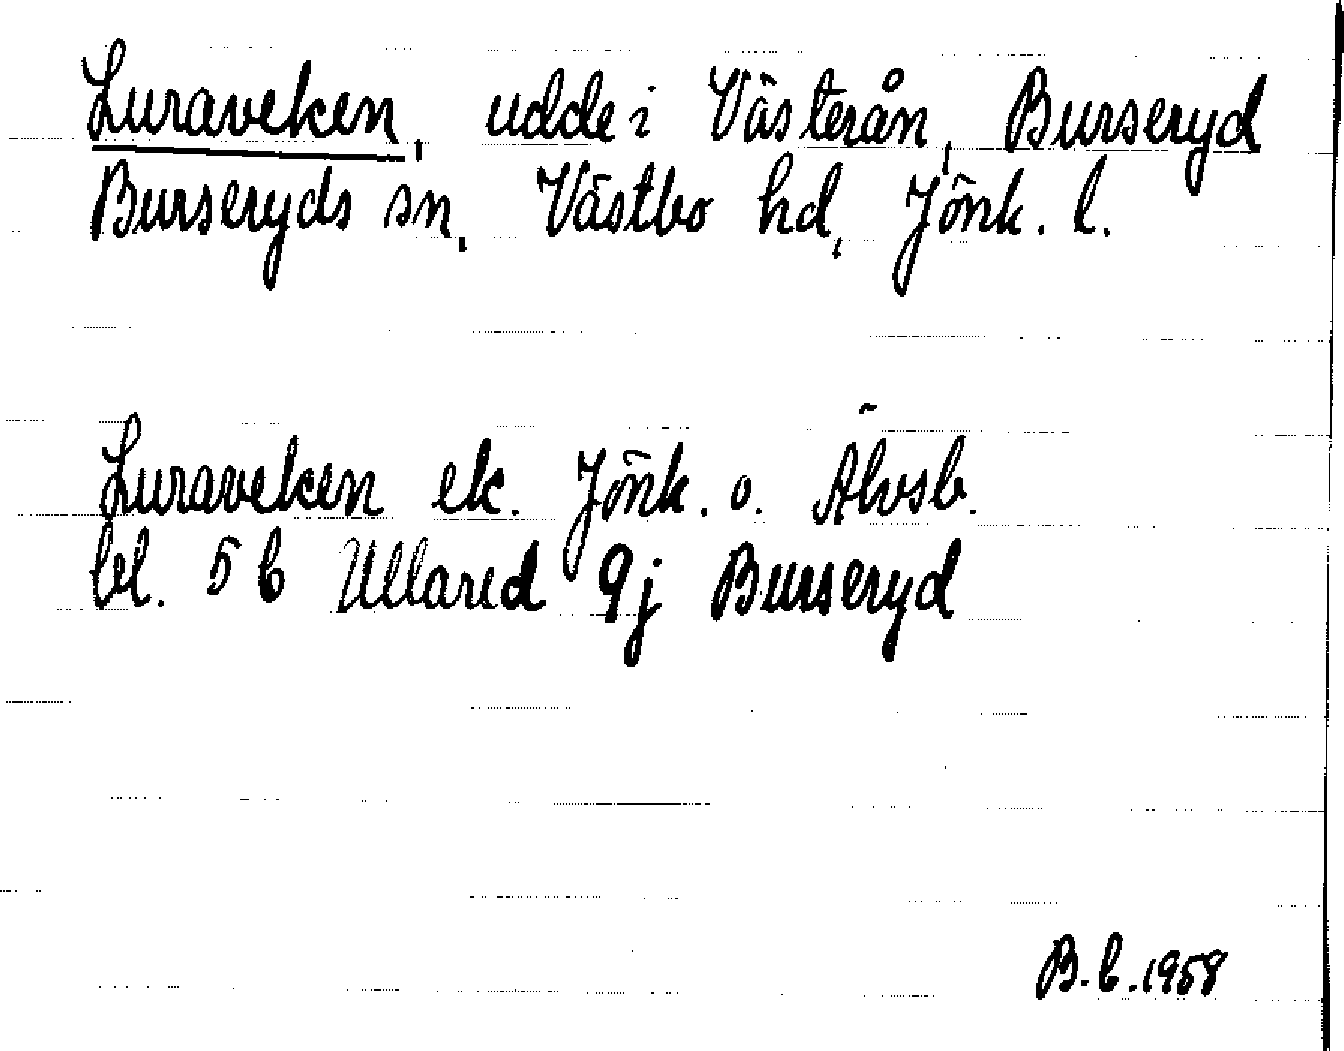 Luraveken, udde i Västerån, Burseryd
Burseryds sn, Västbo hd, Jönk. l.
Luraveken ek. Jönk. o. Älvsb.
bl. 5 b Ullared 9j Burseryd
B.b.1958